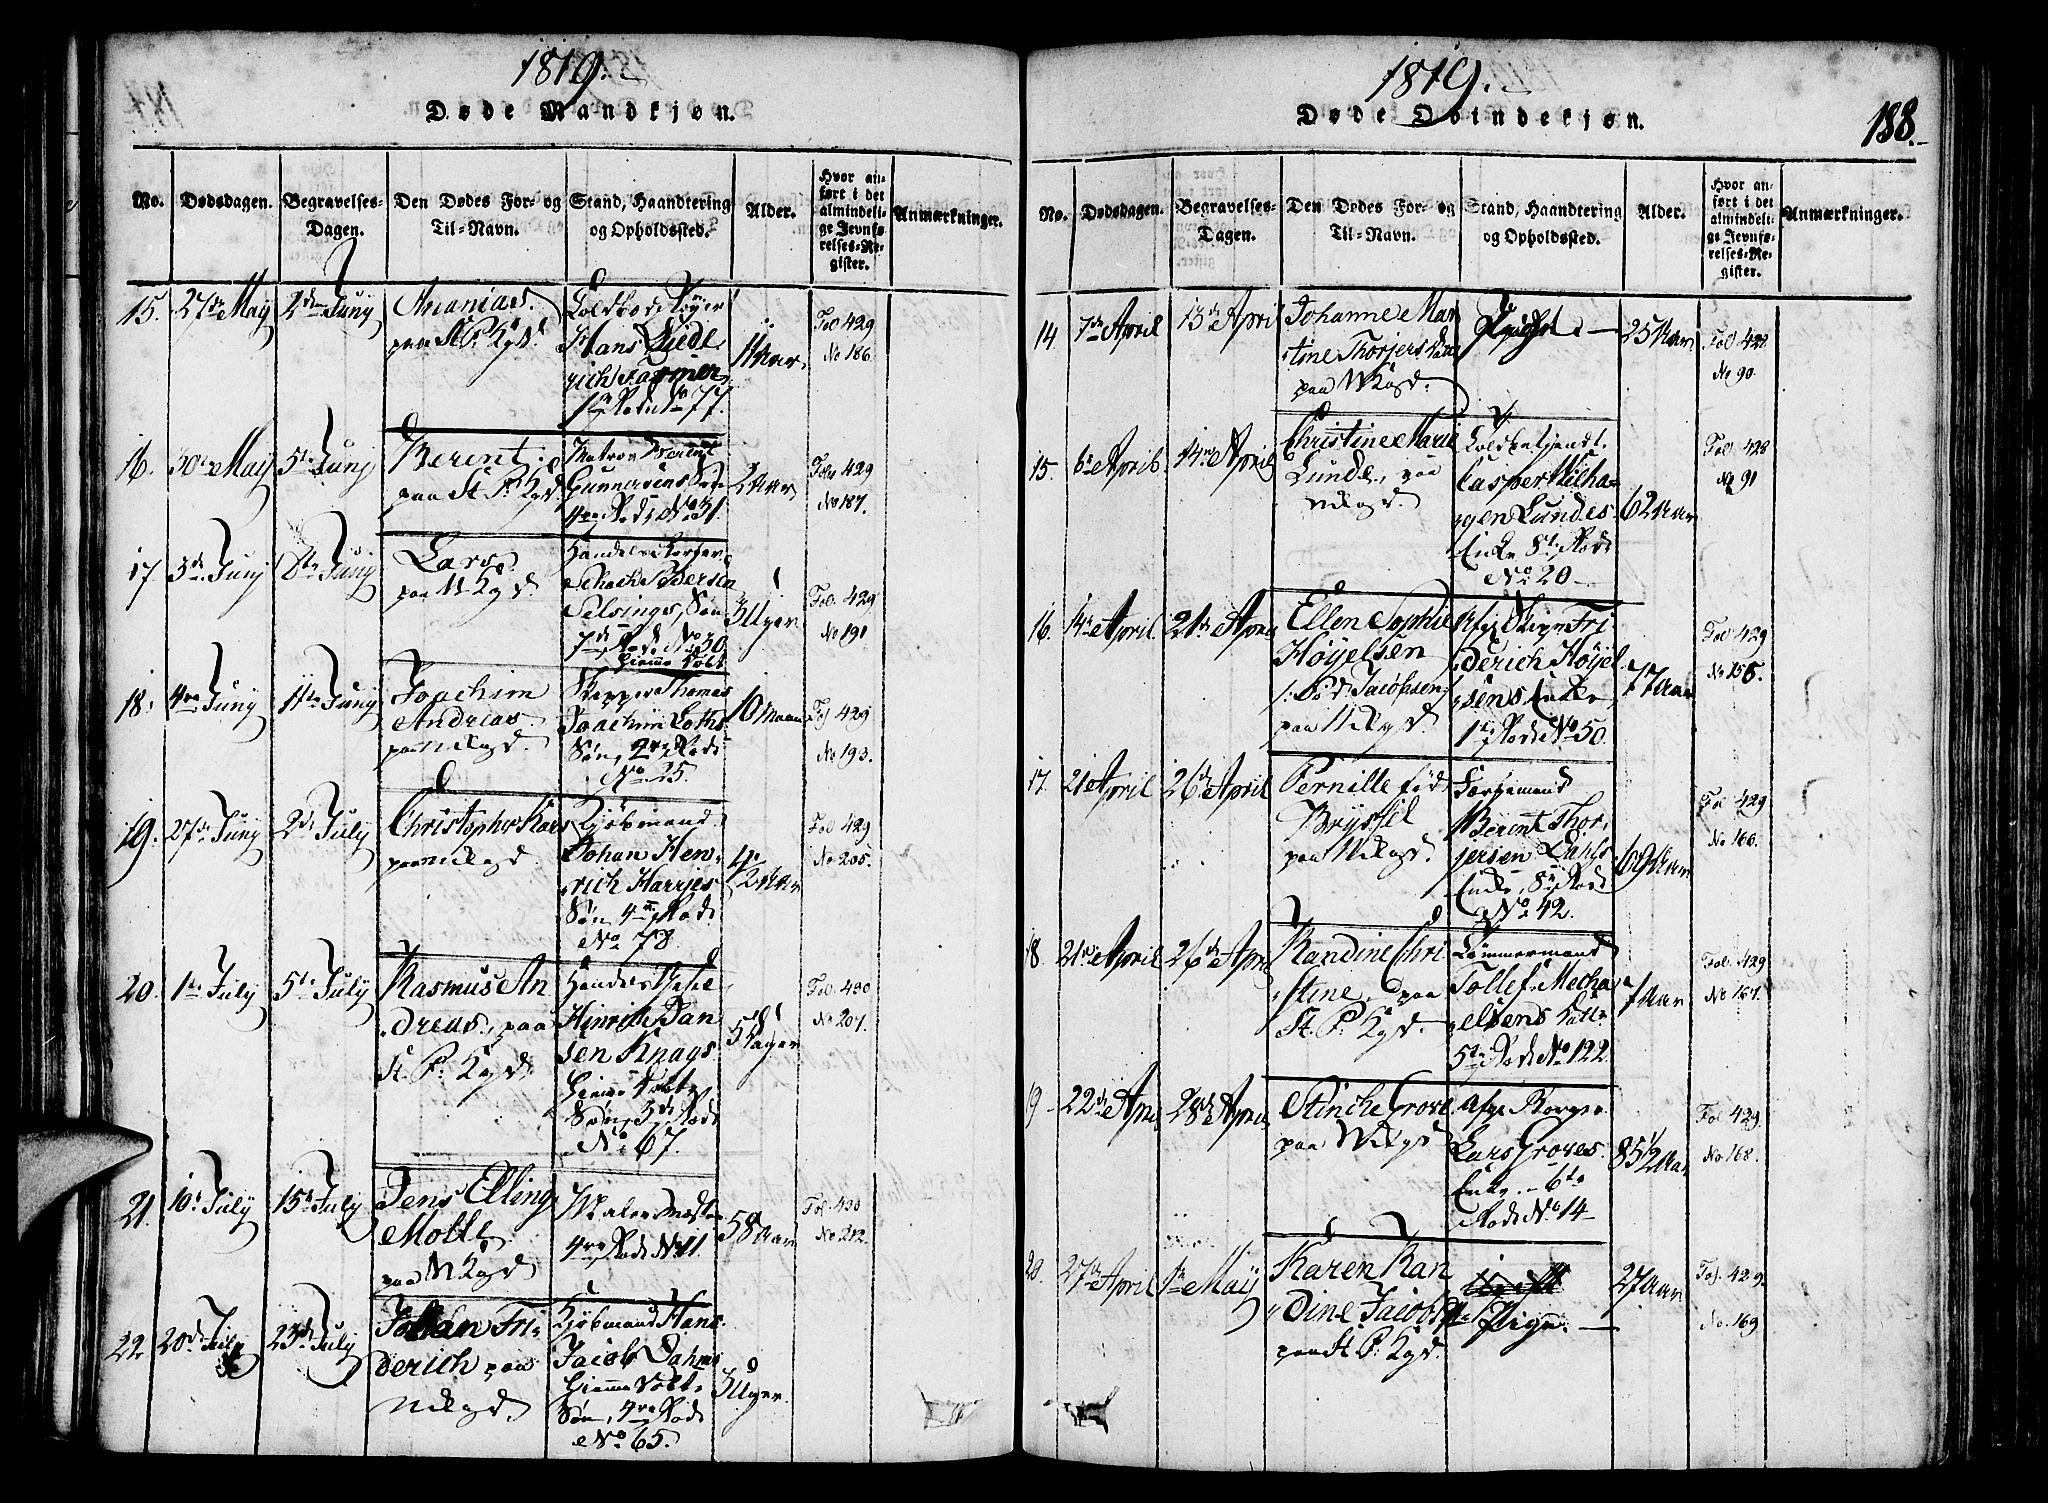 1819.
Døde Mandkjøn.
No.
Dødsdagen.
Begravelses-
Dagen.
Den Dødes For- og
Til-Navn.
Stand, Haandtering
og Opholdssted.
Alder.
Hvor an-
ført i det
almindeli-
ge Jevnfø-
relses-Re-
gister.
Anmærkninger.
15. 27de May 2den Juny
Ananias
paa St. P. Kgd.
Hans Didr
rich
1ste Rode No 77.
11 Aar.
Fol 429
No 186.
16. 30te May 5te Juny
Berent
paa St. P. Kgd.
Matros Berent
Gunnersens Søn
4de Rode No 31.
2 Aar
Fol 429
No 187.
17. 3de Juny 8te Juny
Lars
paa N Kgd.
Pedersen
Selsings, Søn
7de Rode No 30
3 Uger
Fol. 429
No 191
18. 4de Juny 11te Juny
Hiemme Døbt
Joachim
Andreas
paa Nykgd.
Skipper Thomas
Joachim Loths
Søn, 2den Rode
No 25.
10 Maan
Fol 429
No 193.
19. 27de Juny 2den July
Christopher Lars
paa Nykgd.
Kjøbmand
Johan Hen-
rich Harries
Søn 4de Rode
No 78
4 1/2 Aar
Fol. 429
No 205.
20. 1ste July 5te July
Rasmus An
dreas, paa
St. P. Kgd.
Hinrich Dan
sen Knags
Hiemme Døbte
Søn, 3de Rode
No 67.
5 Dager
Fol 430
No 207.
21. 10de July 15de July
Jens Elling
Moll
paa N Kgd
Maler Mester
4de Rode No 11.
58 Aar
Fol. 430
No 212.
22. 20de July 23de July
Johan Fri-
derich paa
Nykgd.
Kjøbmand Hans
Jacob Dahms
Hiemme Døbte
Søn, 4de Rode
No 65.
3 Uger
1819.
Døde Qvindekjøn.
188.
No.
Dødsdagen.
Begravelses-
Dagen.
Den Dødes For- og
Til-Navn.
Stand, Haandtering
og Opholdssted.
Alder.
Hvor an-
ført i det
almindeli-
ge Jevnfø-
relses-Re-
gister.
Anmærkninger.
14 7de April 13de April
Johanne Mar
tine Thorjers Datter
paa N Kgd.
25 Aar
Fol 428
No 90.
15. 6te April 14de April
Christine Marie
Lunde, paa
Nykgd.
Casper Milha-
gen Lundes
Enke 8de Rode
No 20
62 Aar
Fol 428
No 91
16. 14de April 21de April
Ellen Sophie
Høyelsen
Fød Jacobsen
paa Nykgd.
Fri-
derich Høyel
sens Enke
1ste Rode No 50.
77 Aar
Fol 429
No 158.
17. 21de April 26de April
Pernille fød
Bryssel
paa Nykgd.
Færgemand
Berent Thor-
jersen Dahls
Enke, 8de Rode
No 42.
69 Aar
Fol 429
No 160.
18. 21de April 26de April
Randine Chri
stine, paa
St. P. Kgd.
Tømmermand
Tollef Mecha
elsens Datter
5te Rode No 122
7 Aar
Fol. 429
No 167.
19 22de April 28de April
Stinche Grove
paa Nykgd
Afg. Borger
Lars Groves
Enke. 6te
Rode No 14
85 1/2 Aar
Fol 429.
No. 168.
20. 27de April 1ste May
Karen Ran
dine Jacobs
paa St P. Kgd.
Pige.
27 Aar
Fol. 429.
No. 169